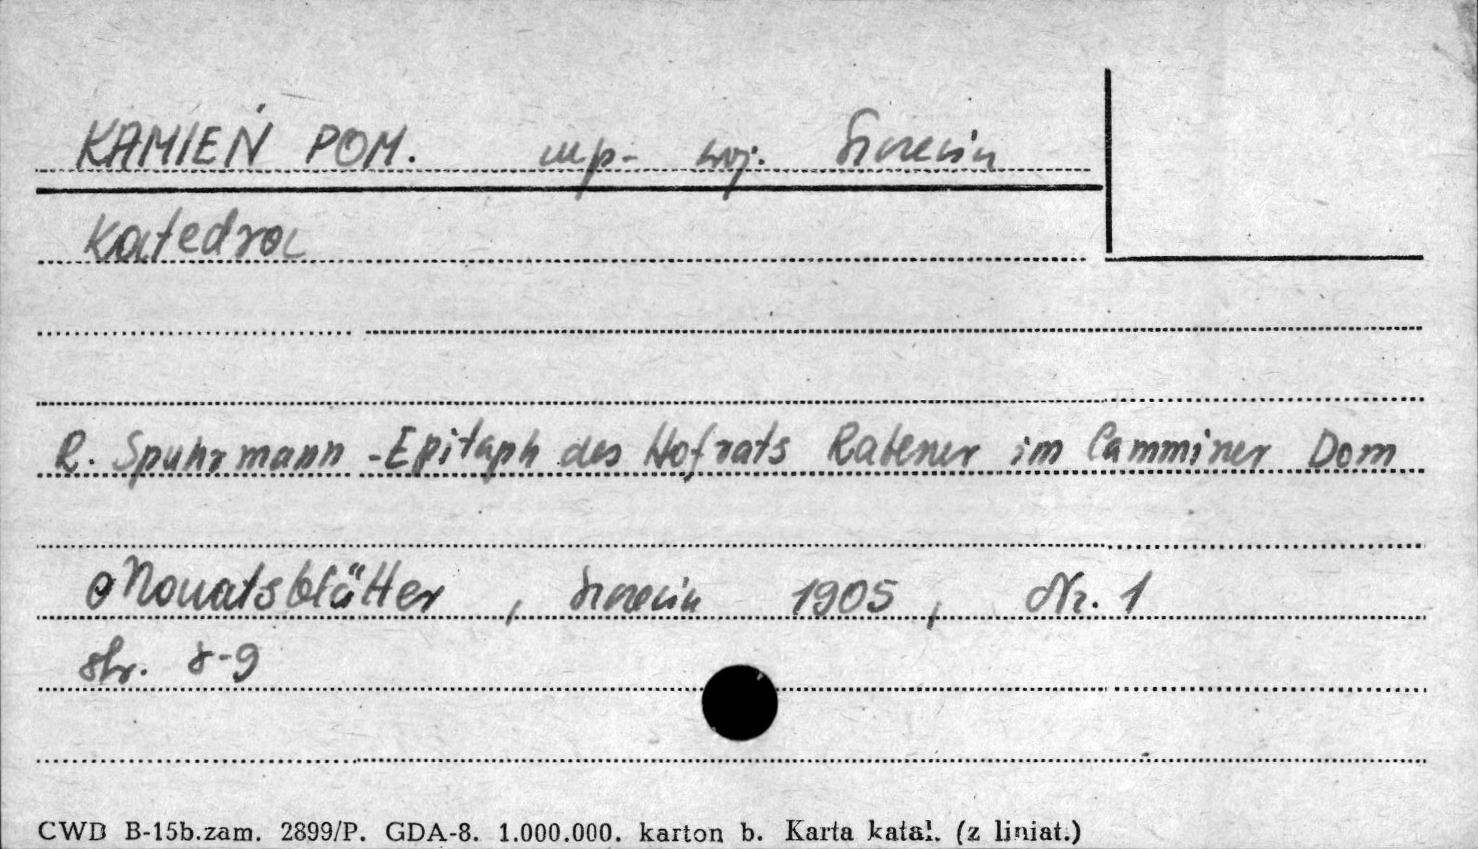 KAMIEŃ POM. mp. woj. Szczecin
Katedra
R. Spuhrmann - Epitaph des Hofrats Rabener im Camminer Dom
Monatsblätter, Szczecin 1905, Nr. 1
str. 8-9
CWD B-15b.zam. 2899/P. GDA-8. 1.000.000. karton b. Karta katal. (z liniat.)